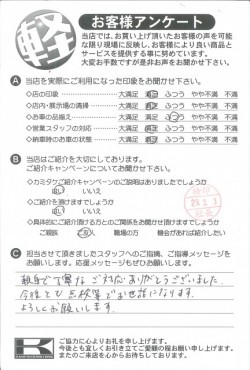 軽
お客様アンケート
当店では、お買い上げ頂いたお客様の声を可能
な限り現場に反映し、お客様により良い商品と
サービスを提供する事に努めています。
大変お手数ですが是非お声をお聞かせ下さい。
A 当店を実際にご利用になった印象をお聞かせ下さい。
◇店の印象 大満足 満足 ふつう やや不満 不満
◇店内・展示場の清掃 大満足 満足 ふつう やや不満 不満
◇お車の品揃え 大満足 満足 ふつう やや不満 不満
◇営業スタッフの対応 大満足 満足 ふつう やや不満 不満
◇納車時のお車の状態 大満足 満足 ふつう やや不満 不満
B 当店はご紹介を大切にしております。
ご紹介についてお聞かせ下さい。
◇カミタケご紹介キャンペーンのご説明はありましたでしょうか
はい いいえ
◇ご紹介を頂けますでしょうか
はい いいえ
◇具体的にご紹介頂ける方とのご関係をお聞かせ頂けますでしょうか
ご親族 職場の方 機会があれば紹介したい
C 担当させて頂きましたスタッフへのご指摘、ご指導メッセージを
お願いします。応援メッセージもぜひお願いします。
親身で丁寧なご対応ありがとうございました。
今後とも点検等でお世話になります。
よろしくお願いします。
K
ご協力に心よりお礼を申し上げます。
今後とも宜しくお引き立てご愛顧の程お願い申し上げます。
またのご来店を心からお待ちしております。